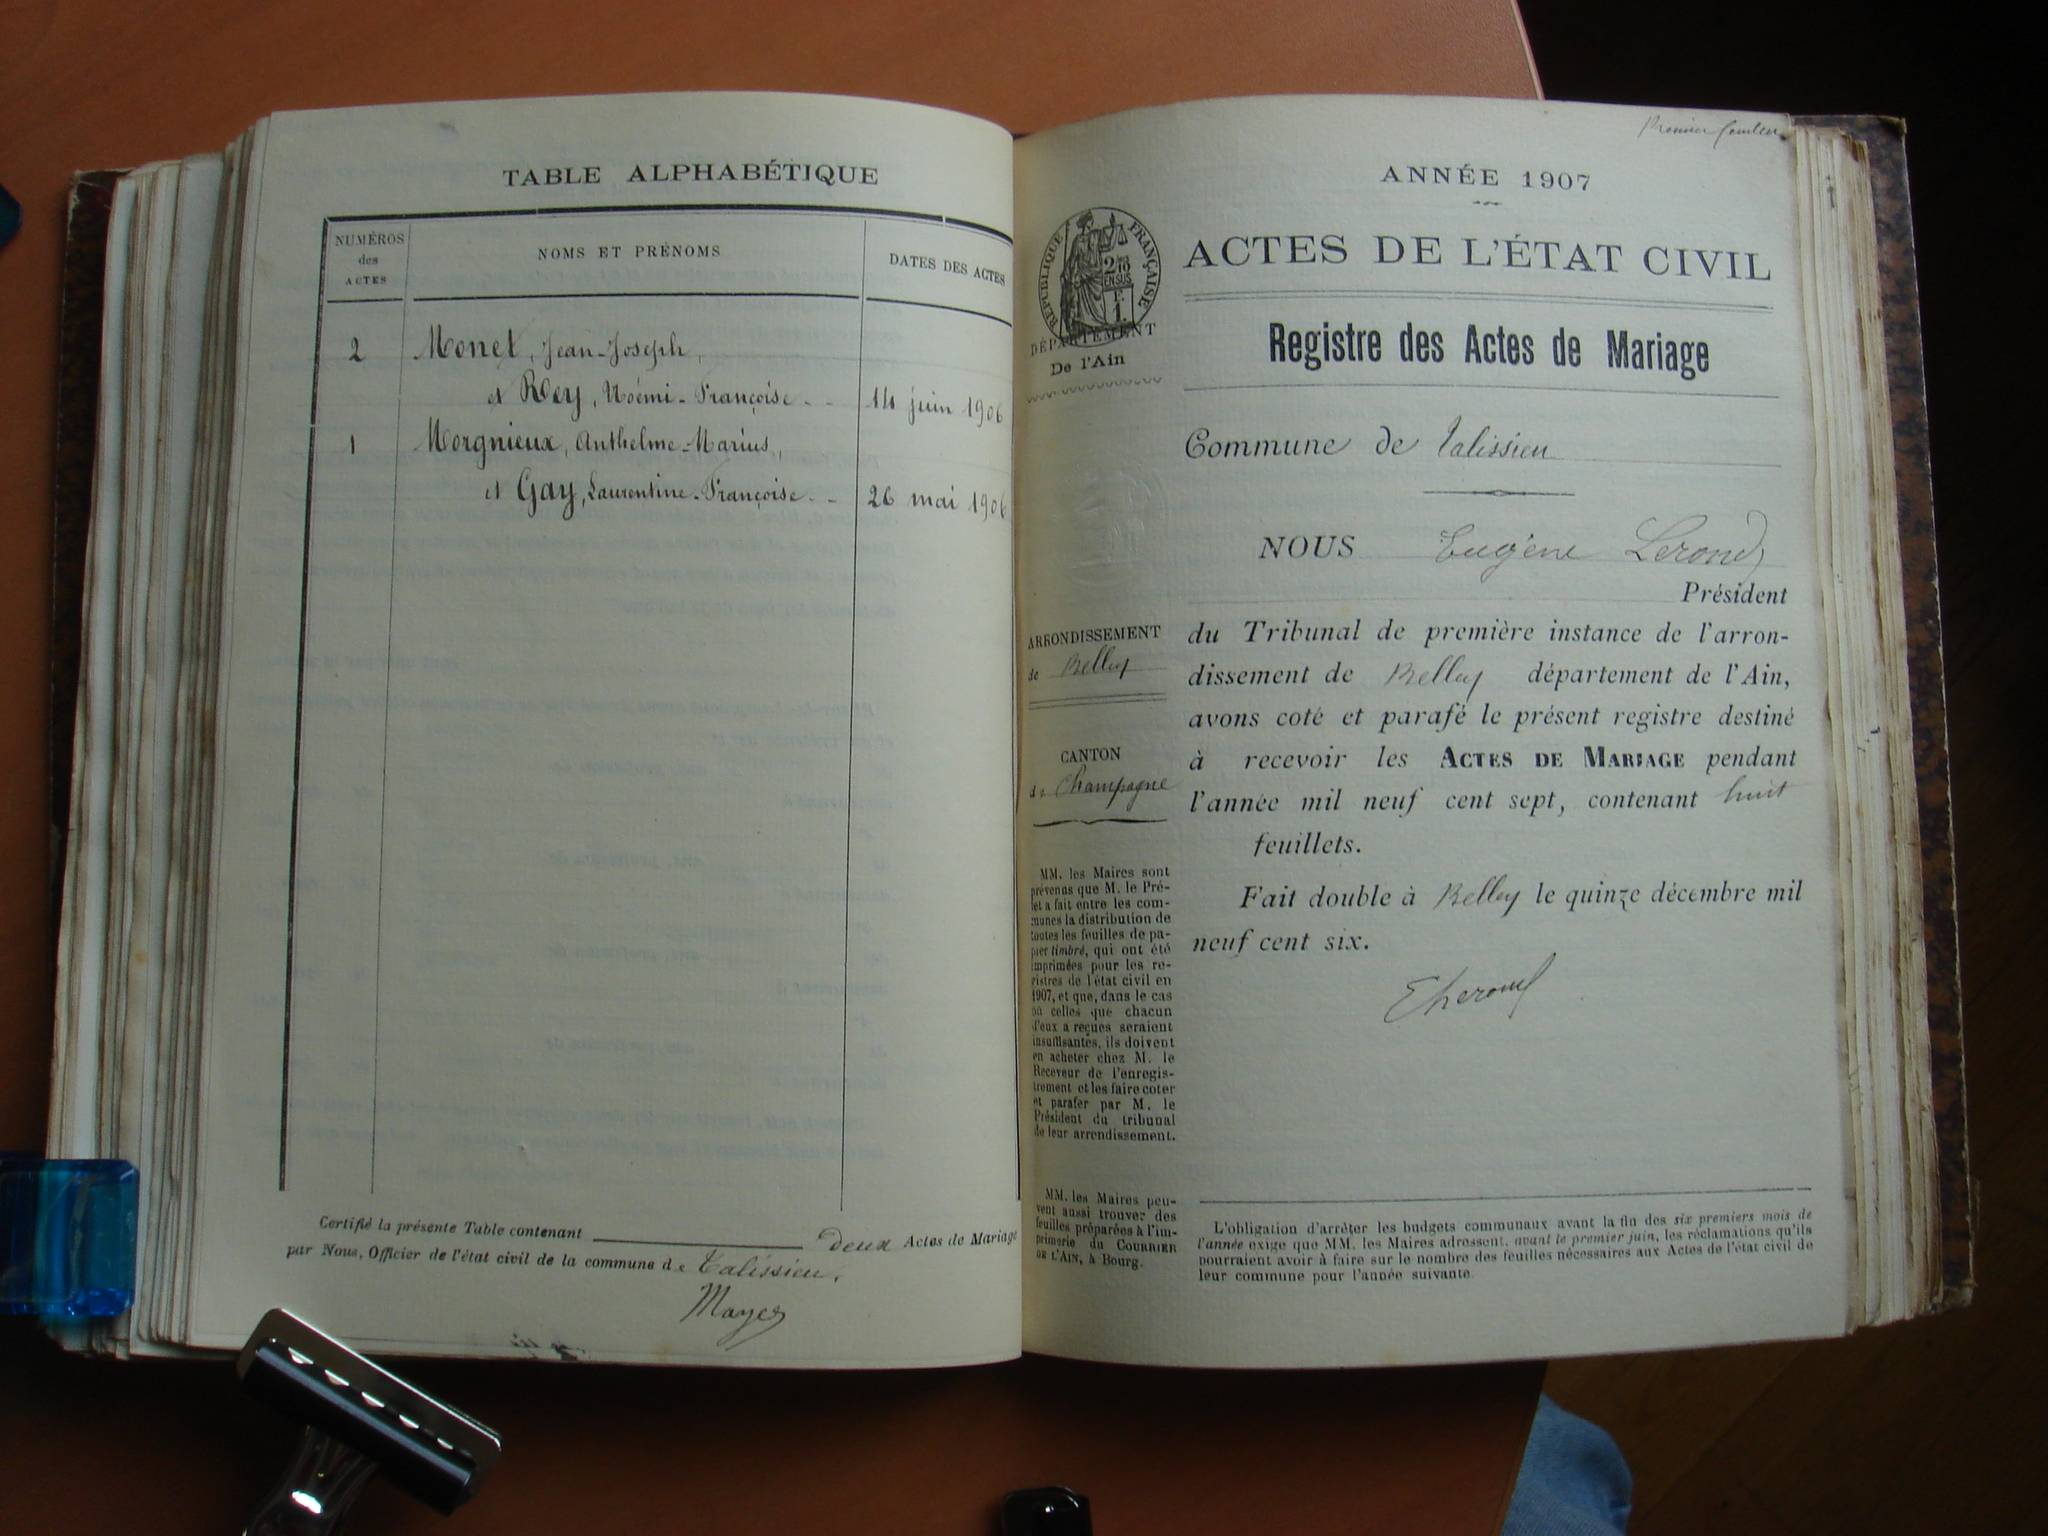 TABLE ALPHABÉTIQUE
NUMÉROS
des
ACTES
NOMS ET PRÉNOMS
DATES DES ACTES
2 Monet, Jean-Joseph,
et Rey, Noémi-Françoise. - - 14 juin 1906
1 Morgnieux, Anthelme-Marius,
et Gay, Laurentine-Françoise. - 26 mai 1906
Certifié la présente Table contenant deux Actes de Mariage
par Nous, Officier de l'état civil de la commune de Talissieu.
Mayer
Premier feuillet
ANNÉE 1907
RÉPUBLIQUE FRANÇAISE
2/10
EN SUS
DÉPARTEMENT
De l'Ain
ACTES DE L'ÉTAT CIVIL
Registre des Actes de Mariage
Commune de Talissieu
NOUS Eugène Lerond
Président
du Tribunal de première instance de l'arron-
dissement de Belley département de l'Ain,
avons coté et parafé le présent registre destiné
à recevoir les ACTES DE MARIAGE pendant
l'année mil neuf cent sept, contenant huit
feuillets.
Fait double à Belley le quinze décembre mil
neuf cent six.
ELerond
ARRONDISSEMENT
de Belley
CANTON
de Champagne
MM. les Maires sont
prévenus que M. le Pré-
fet a fait entre les com-
munes la distribution de
toutes les feuilles de pa-
pier timbré, qui ont été
imprimées pour les re-
gistres de l'état civil en
1907, et que, dans le cas
où celles que chacun
d'eux a reçues seraient
insuffisantes, ils doivent
en acheter chez M. le
Receveur de l'enregis-
trement et les faire coter
et parafer par M. le
Président du tribunal
de leur arrondissement.
MM. les Maires peu-
vent aussi trouver des
feuilles préparées à l'im-
primerie du COURRIER
DE L'AIN, à Bourg.
L'obligation d'arrêter les budgets communaux avant la fin des six premiers mois de
l'année exige que MM. les Maires adressent, avant le premier juin, les réclamations qu'ils
pourraient avoir à faire sur le nombre des feuilles nécessaires aux Actes de l'état civil de
leur commune pour l'année suivante.